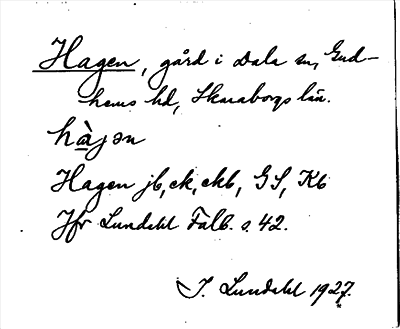 Hagen, gård i Dala sn, Gud-
hems hd, Skaraborgs län.
hàjən
Hagen jb, ck, ckb, GS, Kb
Jfr Lundahl Falb. s. 42.
I. Lundahl 1927.